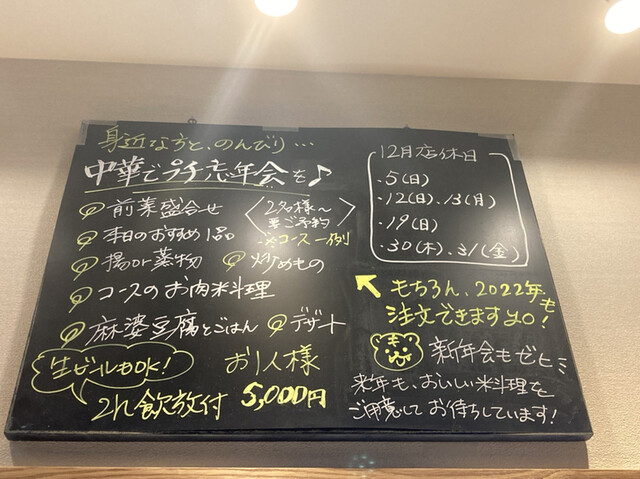 身近な方と、のんびり…
中華でプチ忘年会を♪
前菜盛合せ
〈2名様〜
要ご予約〉
※コース一例
本日のおすすめ1品
揚or蒸物
炒めもの
コースのお肉料理
麻婆豆腐とごはん
デザート
生ビールもOK!
2h飲放付
お1人様
5,000円
12月店休日
・5(日)
・12(日)、13(月)
・19(日)
・30(木)、31(金)
もちろん、2022年も
注文できますyo!
新年会もゼヒミ
来年も、おいしい料理を
ご用意してお待ちしています!